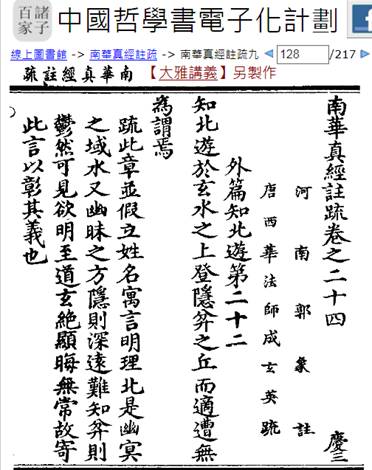 諸子百家 中國哲學書電子化計劃
線上圖書館 -> 南華真經註疏 -> 南華真經註疏九 128 /217
南華真經註疏 【大雅講義】另製作
南華真經註疏卷之二十四 慶三
河南郭象註
唐西華法師成玄英疏
外篇知北遊第二十二
知北遊於玄水之上登隱弅之丘而適遭無
為謂焉
疏此章並假立姓名寓言明理北是幽冥
之域水又幽昧之方隱則深遠難知弅則
鬱然可見欲明至道玄絕顯晦無常故寄
此言以彰其義也